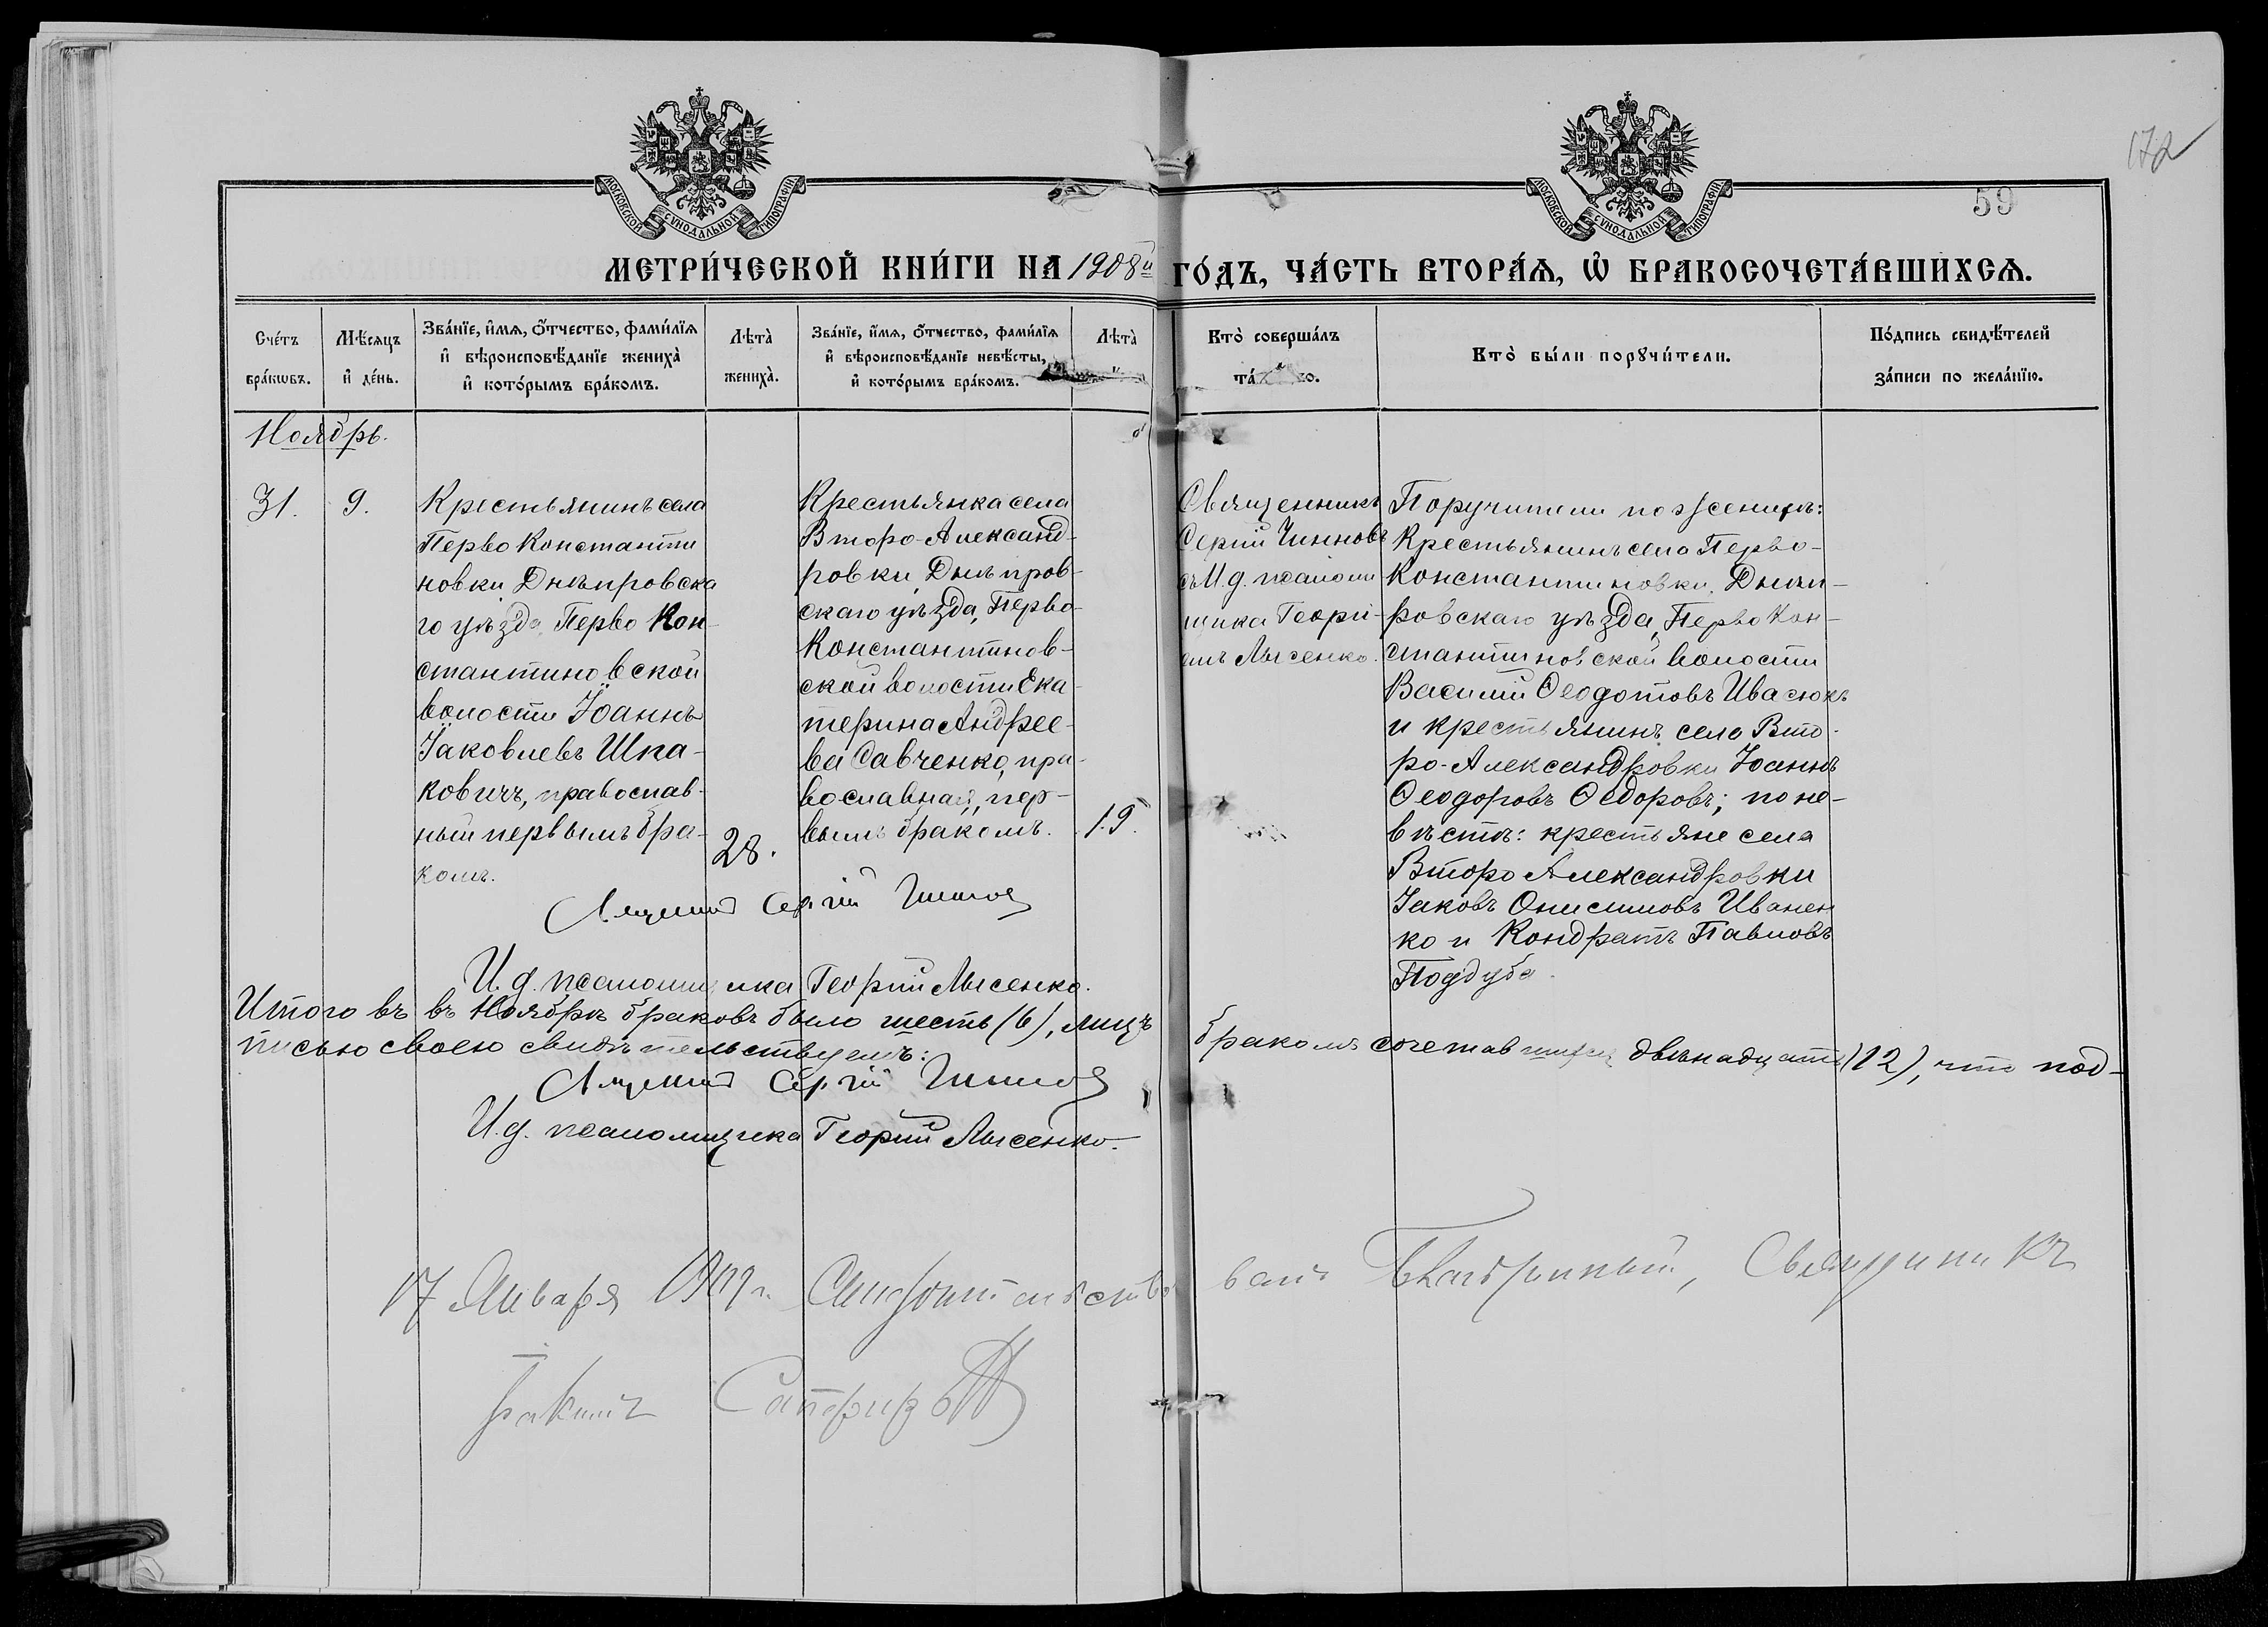 172
59
МОСКОВСКОЙ СУНОДАЛЬНОЙ ТИПОГРАФІИ
МОСКОВСКОЙ СУНОДАЛЬНОЙ ТИПОГРАФІИ
МЕТРИ́ЧЕСКОЙ КНИ́ГИ НА 1908й ГО́ДЪ, ЧА́СТЬ ВТОРА́Ѧ, Ѡ҆ БРАКОСОЧЕТА́ВШИХСѦ.
Сче́тъ
бра́кѡвъ.
Мѣ́сяцъ
и҆ де́нь.
Зва́нїе, и҆́мѧ, ѻ҆́тчество, фами́лїѧ
и҆ вѣроисповѣ́данїе жениха̀
и҆ кото́рымъ бра́комъ.
Лѣта̀
жениха̀.
Зва́нїе, и҆́мѧ, ѻ҆́тчество, фами́лїѧ
и҆ вѣроисповѣ́данїе невѣ́сты,
и҆ кото́рымъ бра́комъ.
Лѣта̀
Кто̀ соверша́лъ
Кто̀ бы́ли порꙋчи́тели.
По́дпись свидѣ́телей
за́писи по жела́нїю.
Ноябрь.
31.
9.
Крестьянинъ села
Перво Константи
новки Днѣпровска
го уѣзда, Перво Кон-
стантиновской
волости Іоаннъ
Іаковлевъ Шпа-
ковичъ, православ-
ный первымъ бра-
комъ.
28.
Крестьянка села
Второ-Александ-
ровки Днѣпров-
скаго уѣзда, Перво-
Константинов-
ской волости Ека-
терина Андрее-
ва Савченко, пра-
вославная, пер-
вымъ бракомъ.
19.
Священникъ
Сергій Чинновъ
съ И.д. псалом
щика Георгі-
емъ Лысенко.
Поручители по женихѣ:
Крестьянинъ села Перво-
Константиновки, Днѣп-
ровскаго уѣзда, Перво Кон-
стантиновской волости
Василій Ѳеодотовъ Ивасюкъ
и крестьянинъ села Вто-
ро-Александровки Іоаннъ
Ѳеодоровъ Ѳедоровъ; по не-
вѣстѣ: крестьяне села
Второ Александровки
Іаковъ Онисимовъ Иванен
ко и Кондратъ Павловъ
Поддуба.
Священникъ Сергій Чинновъ
И.д. псаломщика Георгій Лысенко.
Итого въ въ Ноябрѣ браковъ было шесть (6), лицъ бракомъ сочетавшихся двѣнадцать (12), что под-
писью своею свидѣтельствуемъ:
Священникъ Сергій Чинновъ
И.д. псаломщика Георгій Лысенко.
17 Января 1909 г. Свидѣтельствовалъ Благочинный, Священникъ